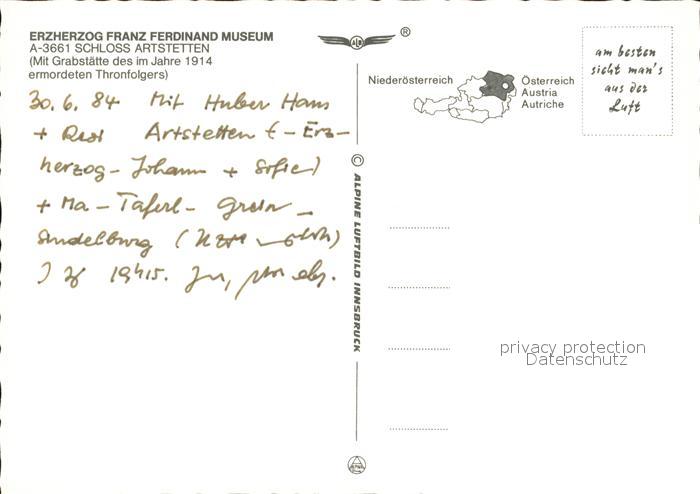 ERZHERZOG FRANZ FERDINAND MUSEUM
A-3661 SCHLOSS ARTSTETTEN
(Mit Grabstätte des im Jahre 1914
ermordeten Thronfolgers)
30.6.84 Mit Huber Hans
+ Resi Artstetten (-Erz-
herzog-Johann + Sofie)
+ Ma-Taferl-Grein-
Sindelburg
19h15.
®
Niederösterreich
Österreich
Austria
Autriche
am besten
sieht man's
aus der
Luft
© ALPINE LUFTBILD INNSBRUCK
privacy protection
Datenschutz